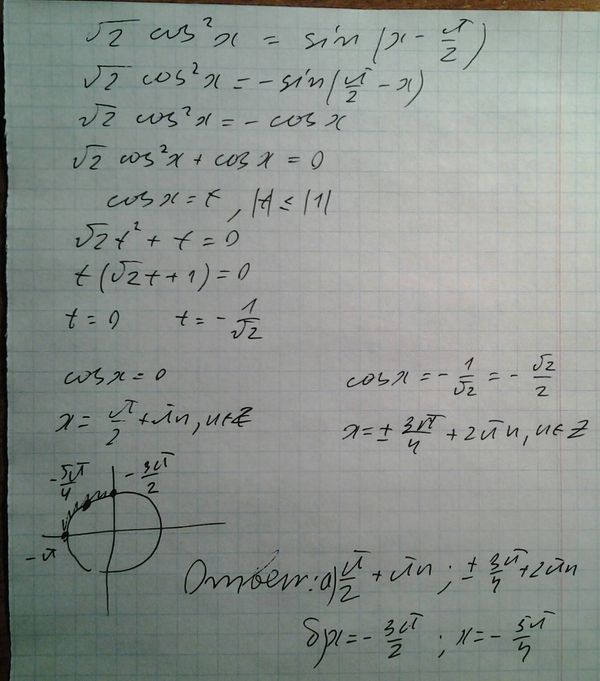 √2 cos²x = sin(x - π/2)
√2 cos²x = -sin(π/2 - x)
√2 cos²x = -cosx
√2 cos²x + cosx = 0
cosx = t, |t| ≤ |1|
√2t² + t = 0
t(√2t + 1) = 0
t = 0 t = -1/√2
cosx = 0 cosx = -1/√2 = -√2/2
x = π/2 + πn, n∈Z x = ± 3π/4 + 2πn, n∈Z
-5π/4 -3π/2
-π
Ответ: а) π/2 + πn ; ± 3π/4 + 2πn
б) x = -3π/2 ; x = -5π/4